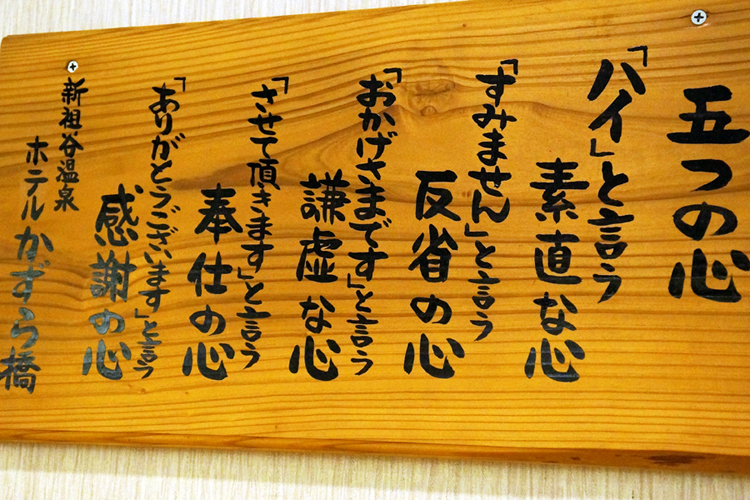 五つの心
「ハイ」と言う
素直な心
「すみません」と言う
反省の心
「おかげさまです」と言う
謙虚な心
「させて頂きます」と言う
奉仕の心
「ありがとうございます」と言う
感謝の心
新祖谷温泉
ホテルかずら橋